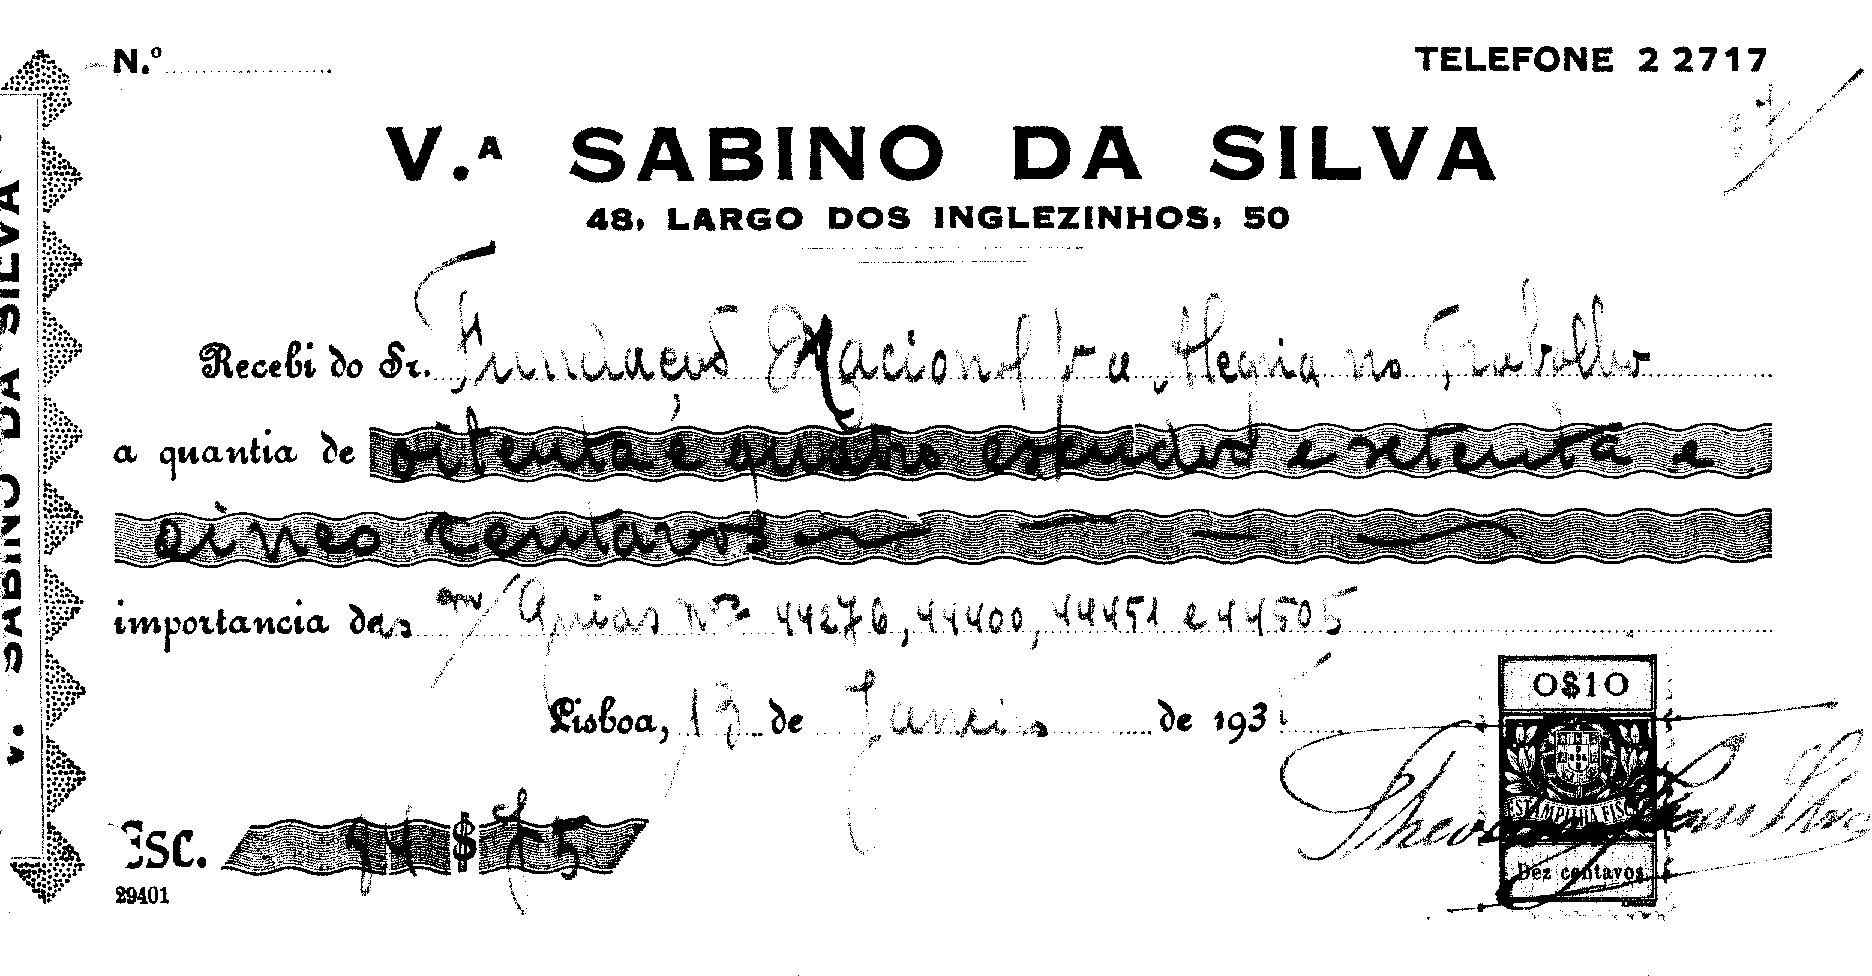 N.º
TELEFONE 2 2717
V.ᴬ SABINO DA SILVA
48, LARGO DOS INGLEZINHOS, 50
Recebi do Sr. Fundação Nacional p.ª a Alegria no Trabalho
a quantia de oitenta e quatro escudos e setenta e
cinco centavos
importancia das Guias nos 44276, 44400, 44451 e 44505
Lisboa, 13 de Janeiro de 193
ESC. 84$75
29401
0$10
ESTAMPILHA FISCAL
Dez centavos
V. SABINO DA SILVA